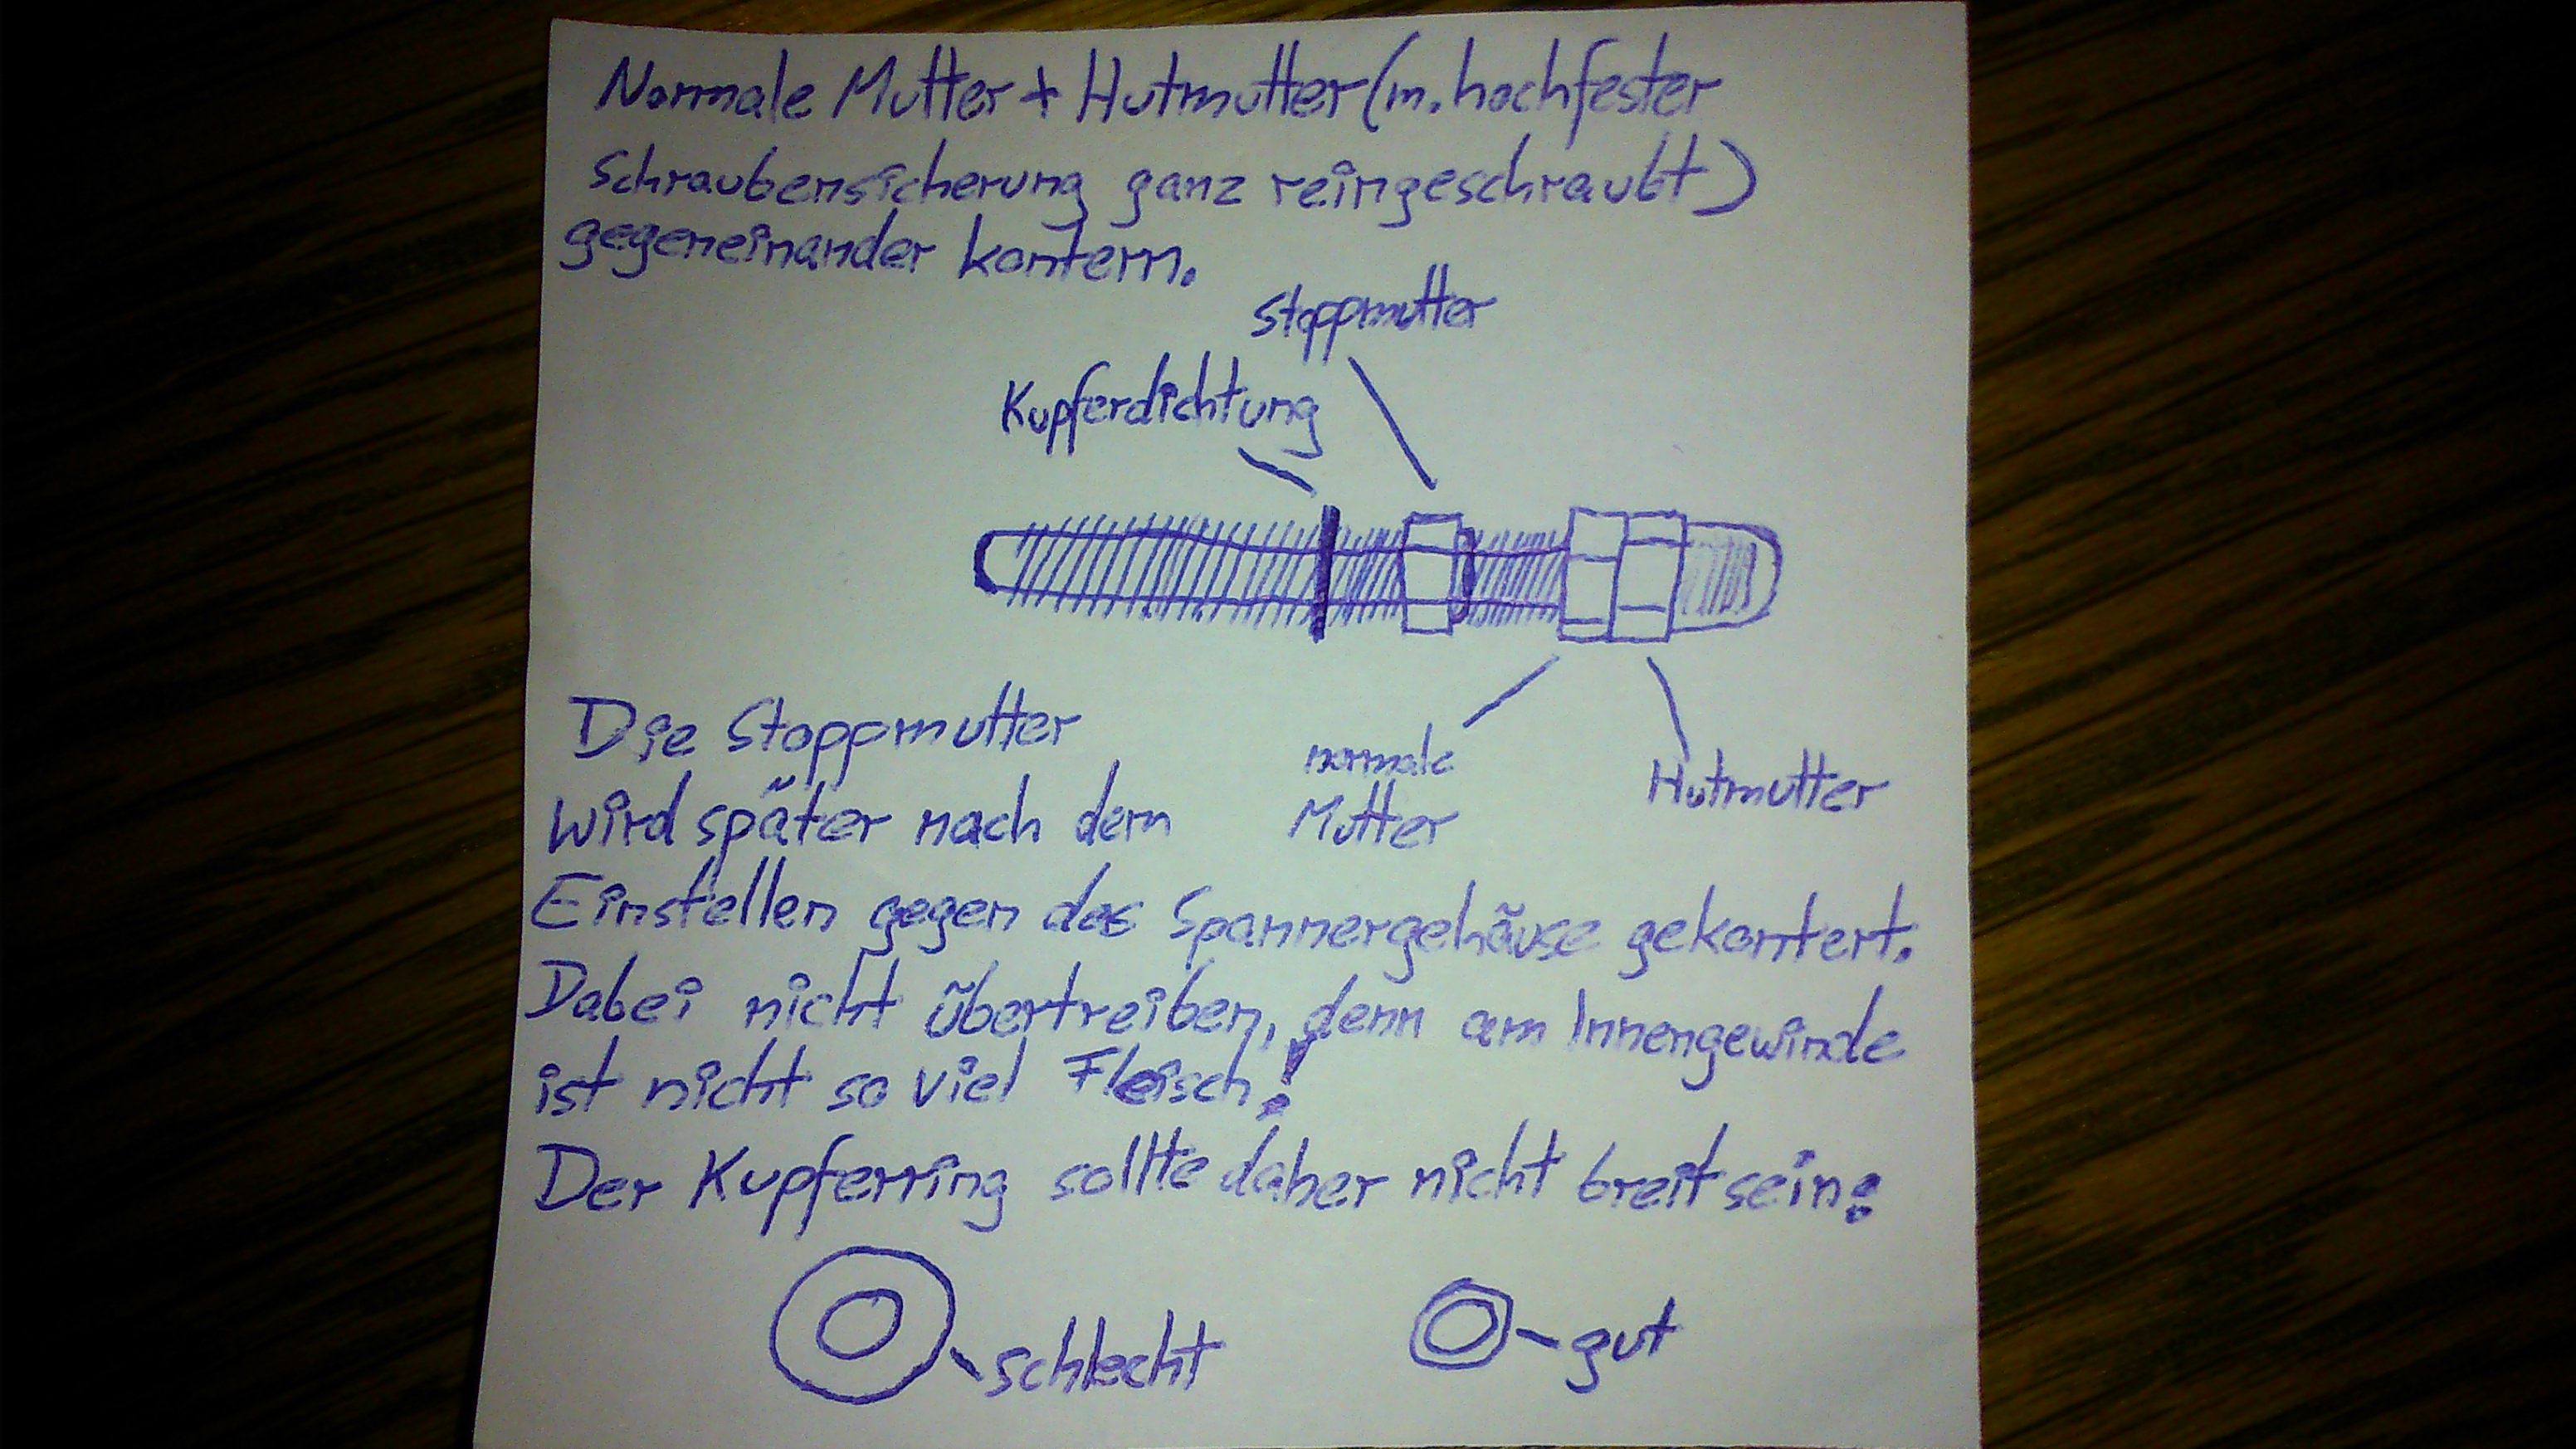 Normale Mutter + Hutmutter (m. hochfester
Schraubensicherung ganz reingeschraubt)
gegeneinander kontern.
Stoppmutter
Kupferdichtung
normale
Mutter
Hutmutter
Die Stoppmutter
wird später nach dem
Einstellen gegen das Spannergehäuse gekontert.
Dabei nicht übertreiben, denn am Innengewinde
ist nicht so viel Fleisch!
Der Kupferring sollte daher nicht breit sein:
schlecht
gut